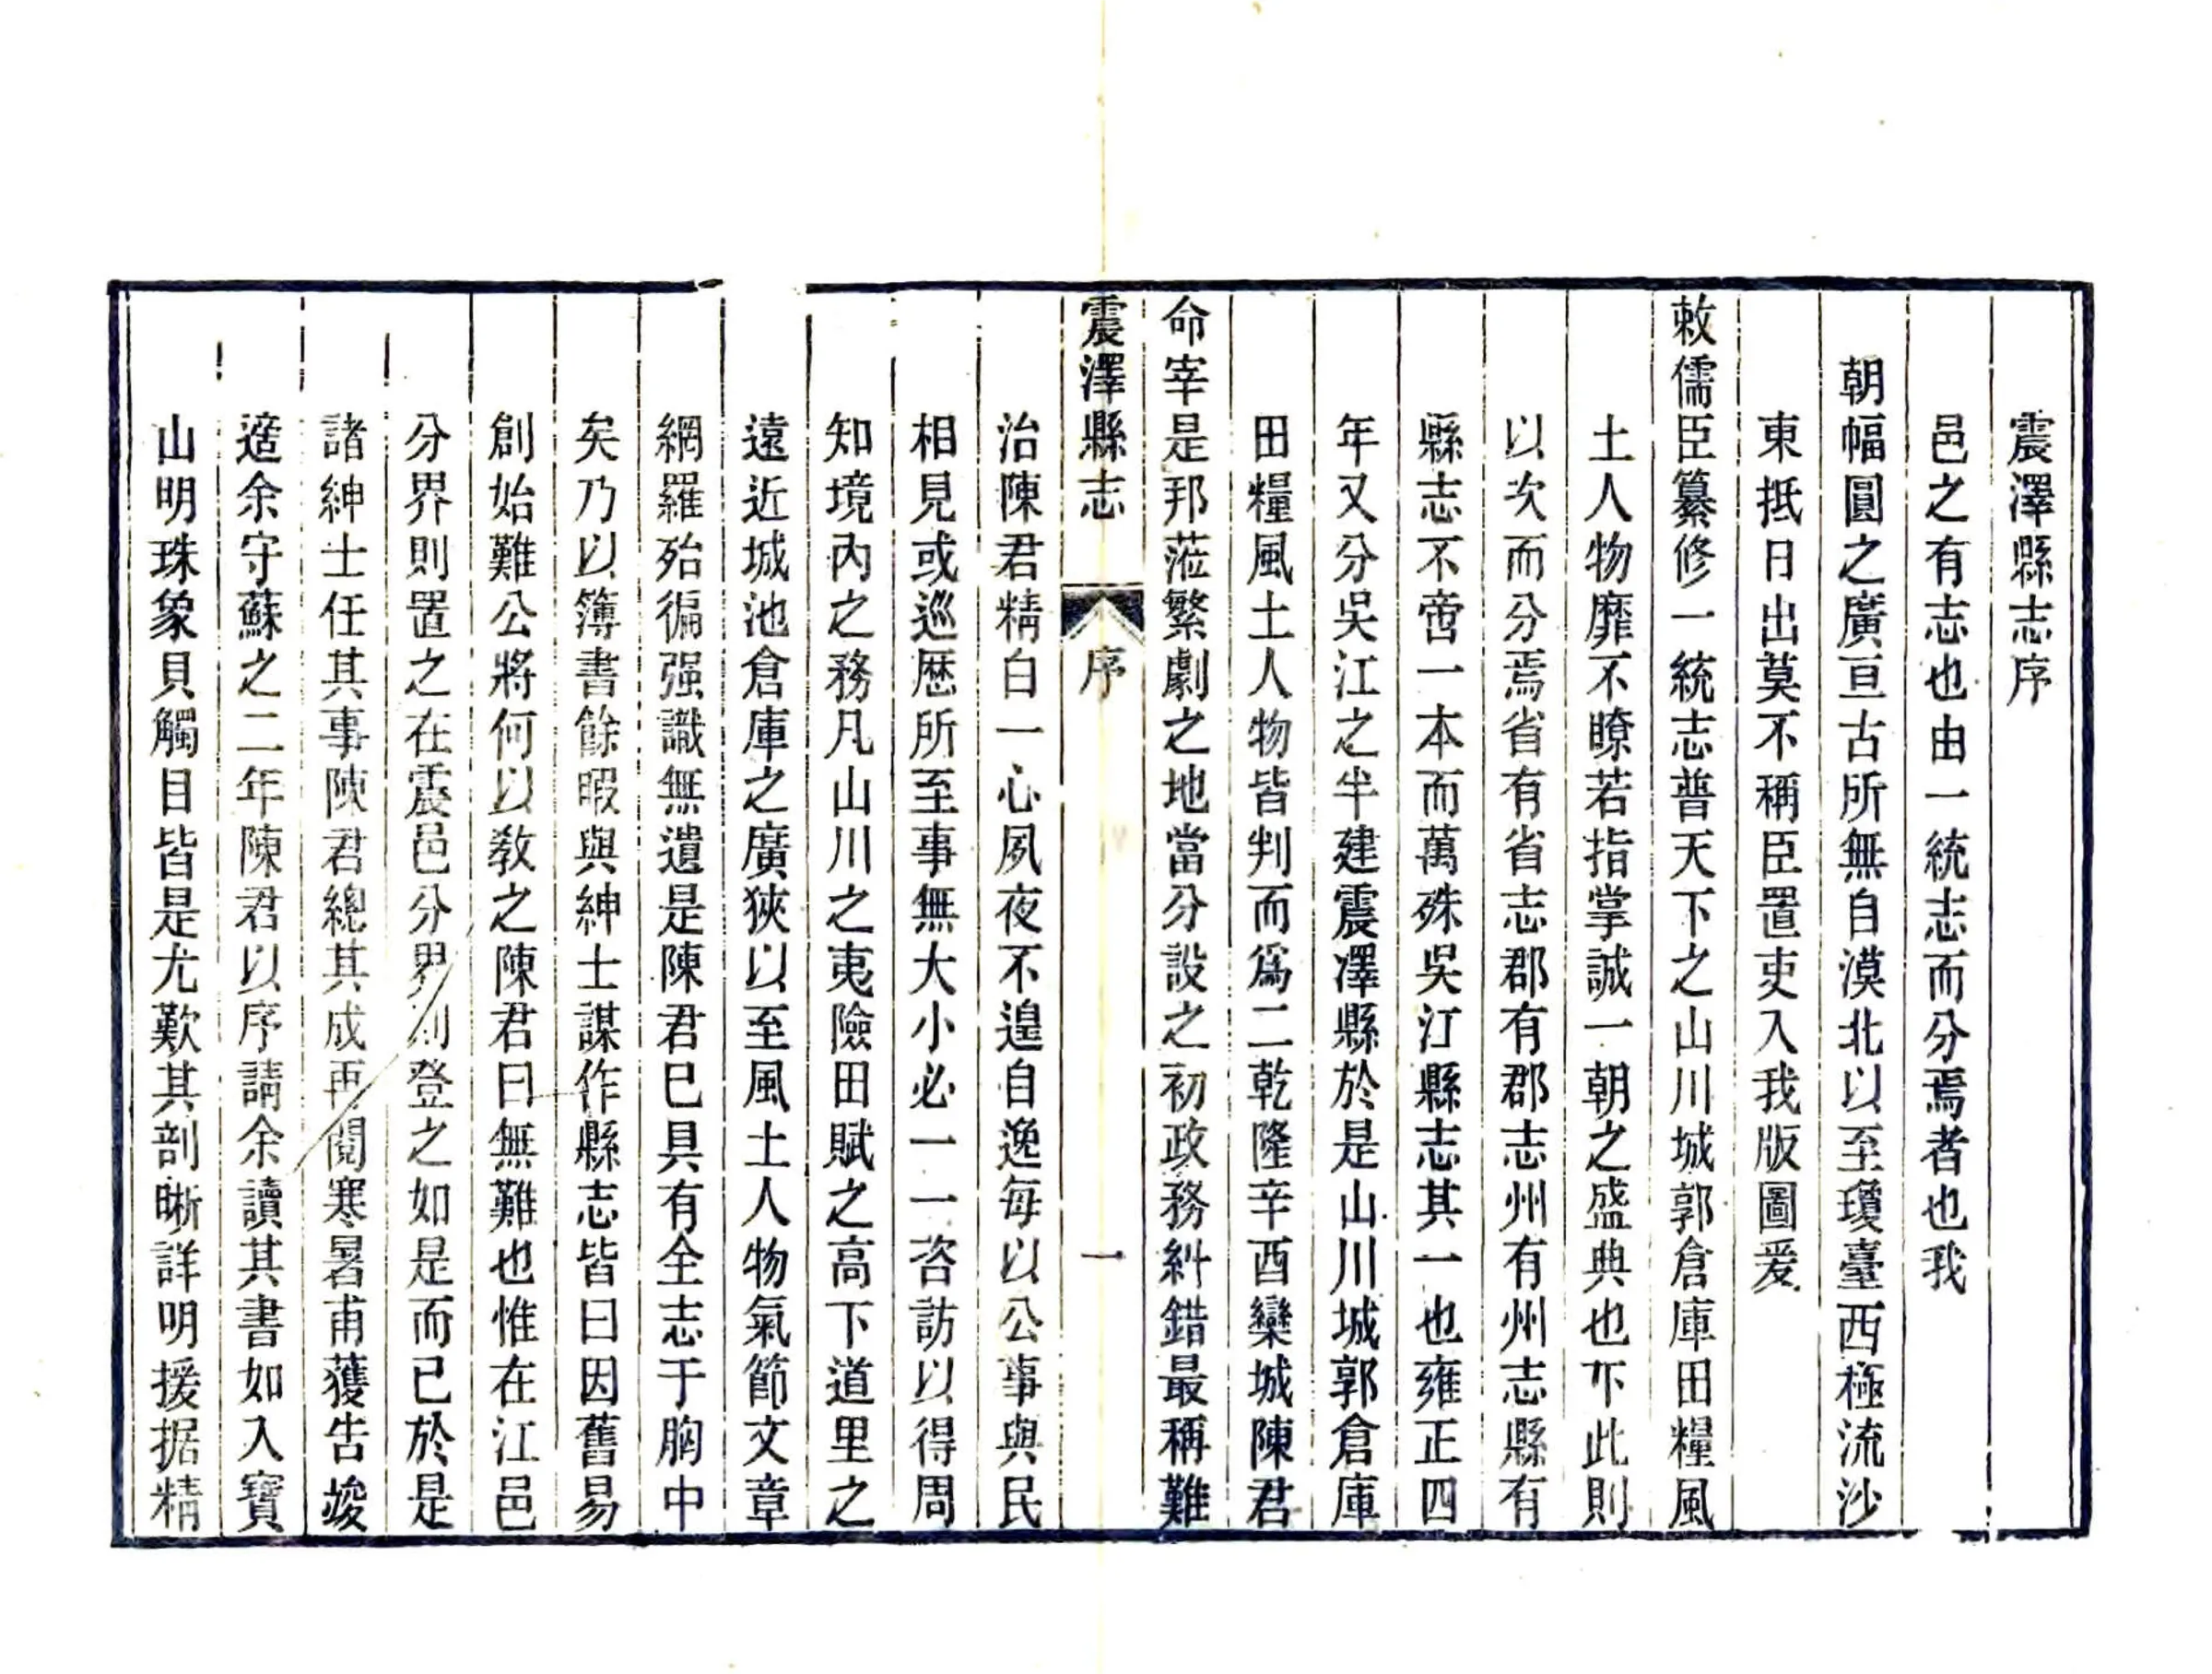 震澤縣志序
邑之有志也由一統志而分焉者也我
朝幅圓之廣亘古所無自漠北以至瓊臺西極流沙
東抵日出莫不稱臣置吏入我版圖爰
敕儒臣纂修一統志普天下之山川城郭倉庫田糧風
土人物靡不瞭若指掌誠一朝之盛典也下此則
以次而分焉省有省志郡有郡志州有州志縣有
縣志不啻一本而萬殊吳江縣志其一也雍正四
年又分吳江之半建震澤縣於是山川城郭倉庫
田糧風土人物皆判而爲二乾隆辛酉欒城陳君
命宰是邦蒞繁劇之地當分設之初政務糾錯最稱難
震澤縣志 序 一
治陳君精白一心夙夜不遑自逸每以公事與民
相見或巡歷所至事無大小必一一咨訪以得周
知境內之務凡山川之夷險田賦之高下道里之
遠近城池倉庫之廣狹以至風土人物氣節文章
網羅殆徧强識無遺是陳君已具有全志于胸中
矣乃以簿書餘暇與紳士謀作縣志皆曰因舊易
創始難公將何以教之陳君曰無難也惟在江邑
分界則置之在震邑分界則登之如是而已於是
諸紳士任其事陳君總其成再閱寒暑甫獲告竣
適余守蘇之二年陳君以序請余讀其書如入寶
山明珠象貝觸目皆是尤歎其剖晰詳明援据精